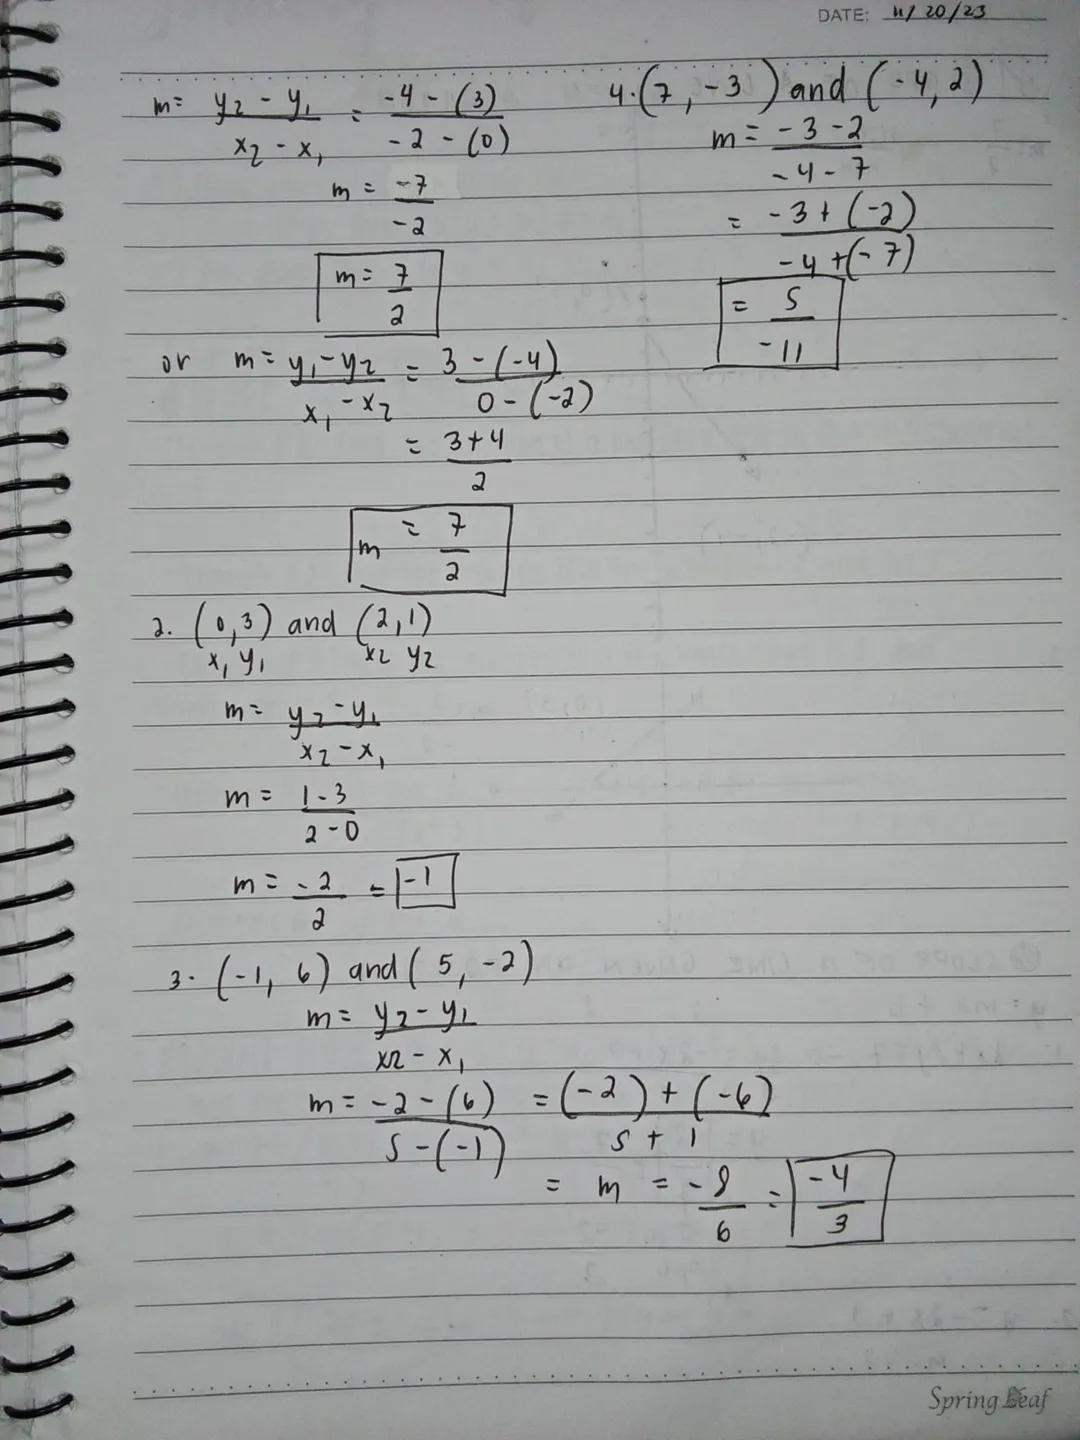 DATE: 11/20/23
m = y₂ - y₁ / x₂ - x₁ = -4 - (3) / -2 - (0)
m = -7 / -2
m = 7 / 2
or m = y₁ - y₂ / x₁ - x₂ = 3 - (-4) / 0 - (-2)
= 3 + 4 / 2
m = 7 / 2
2. (0, 3) and (2, 1)
x₁ y₁ x₂ y₂
m = y₂ - y₁ / x₂ - x₁
m = 1 - 3 / 2 - 0
m = -2 / 2 = -1
3. (-1, 6) and (5, -2)
m = y₂ - y₁ / x₂ - x₁
m = -2 - (6) / 5 - (-1) = (-2) + (-6) / 5 + 1
= m = -8 / 6 = -4 / 3
4. (7, -3) and (-4, 2)
m = -3 - 2 / -4 - 7
= -3 + (-2) / -4 + (-7)
= 5 / -11
Spring Leaf